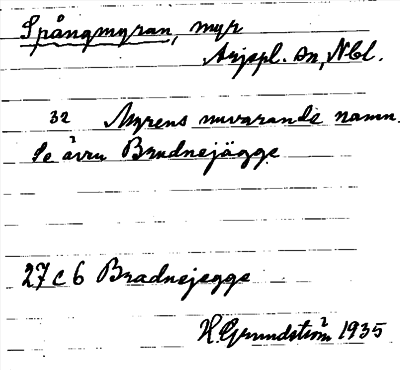 Spångmyran, myr
Arjepl. sn, Nbl.
32 Myrens nuvarande namn.
Se även Bradnejägge
27 c 6 Bradnejegge
H. Grundström 1935